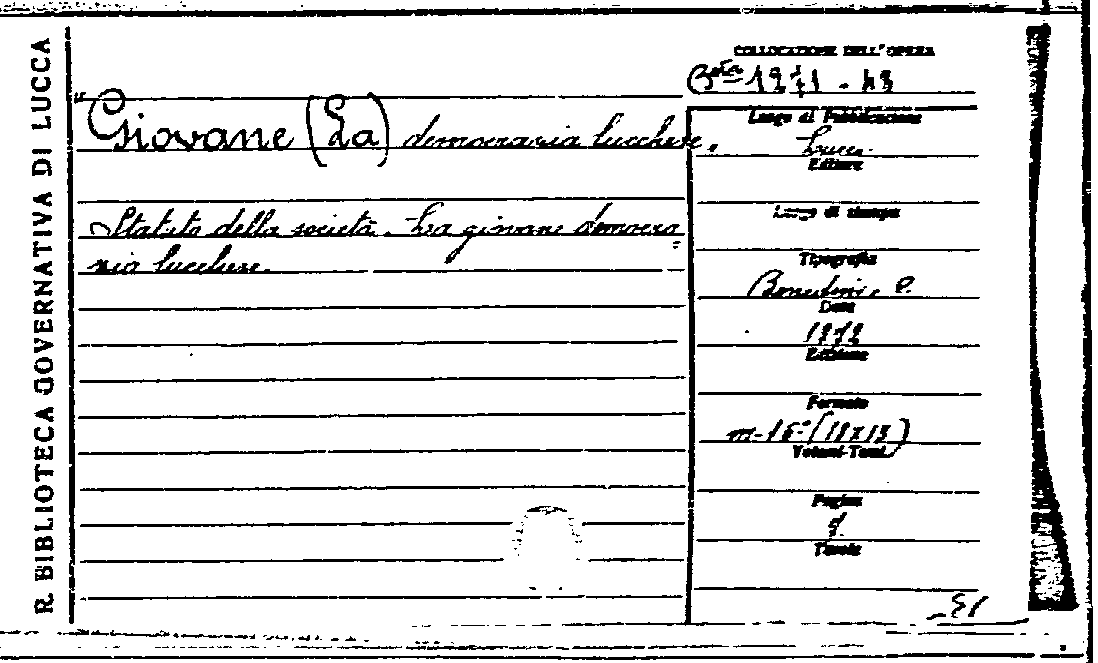 R. BIBLIOTECA GOVERNATIVA DI LUCCA
COLLOCAZIONE DELL'OPERA
Bta
"Giovane (La) democrazia lucchese.
Statuto della società. La giovane democra=
zia lucchese.
Luogo di Pubblicazione
Lucca
Editore
Luogo di stampa
Tipografia
Benedini, P.
Data
Edizione
Formato
m-16°
Volumi-Tomi
Pagine
Tavole